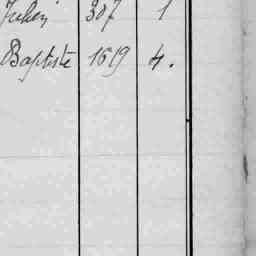 Julien 307 1
Baptiste 1619 4.